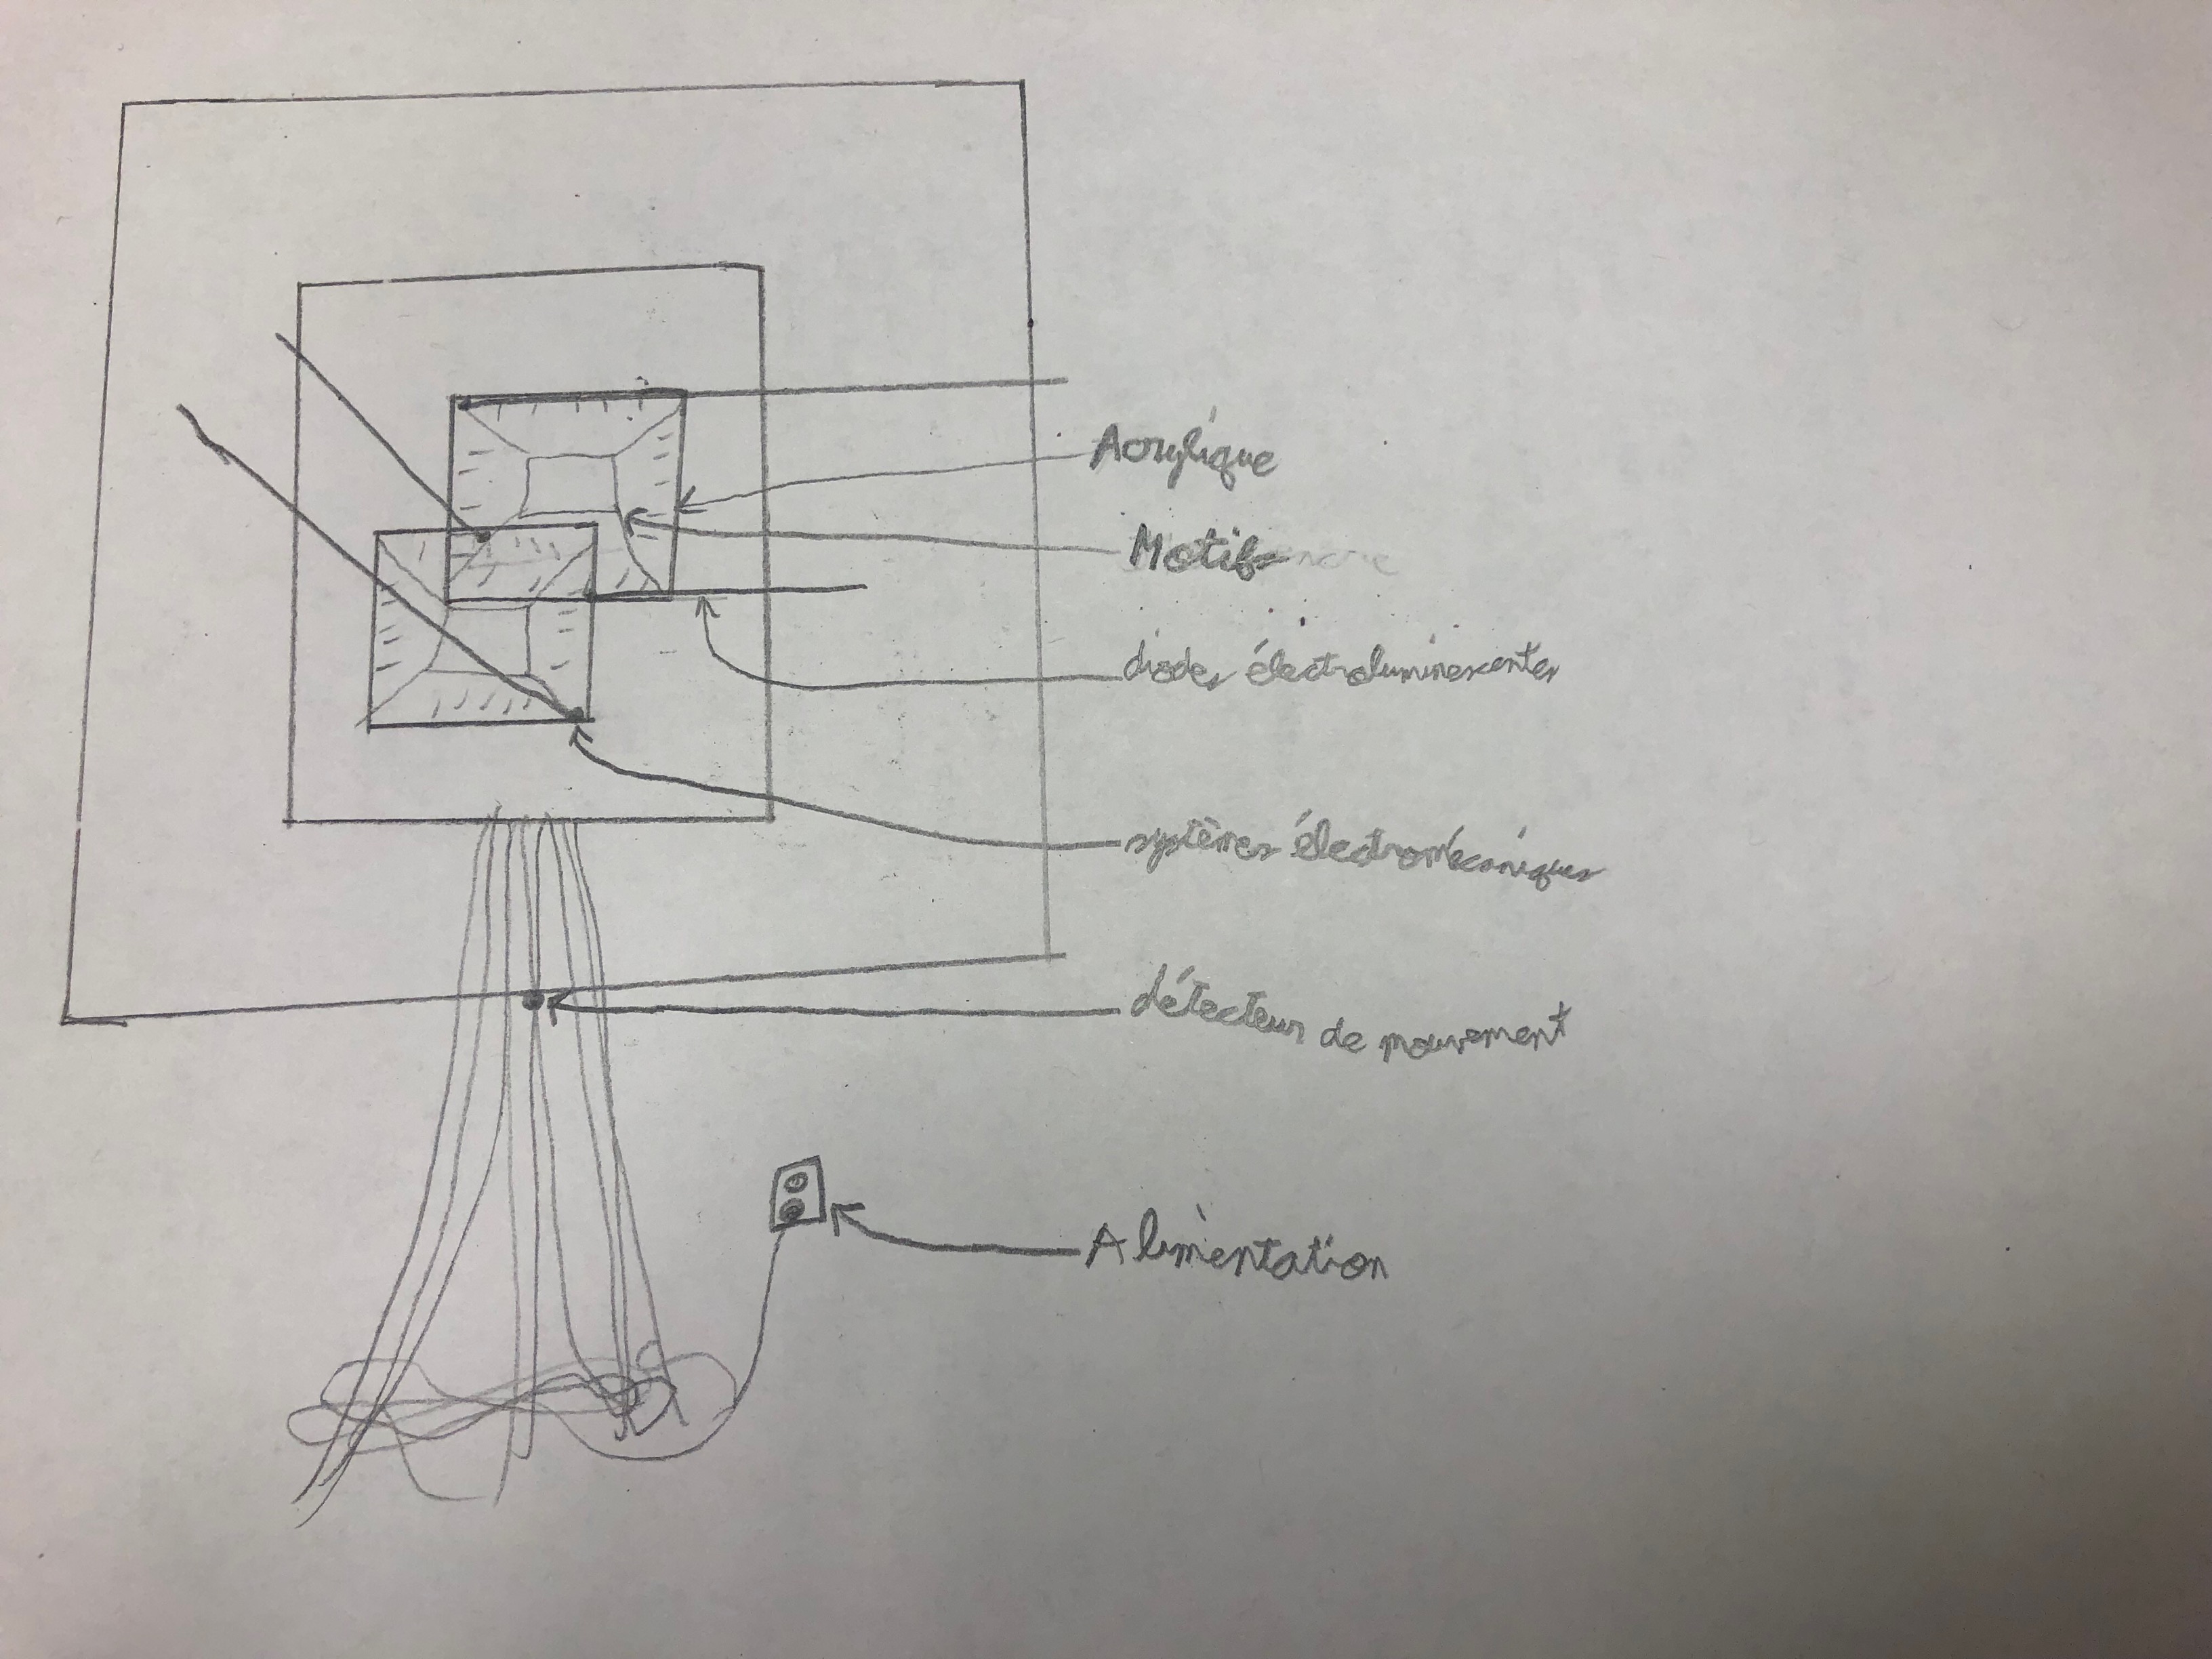 Acrylique
Motifs
diodes électroluminescentes
systèmes électromécaniques
détecteur de mouvement
Alimentation